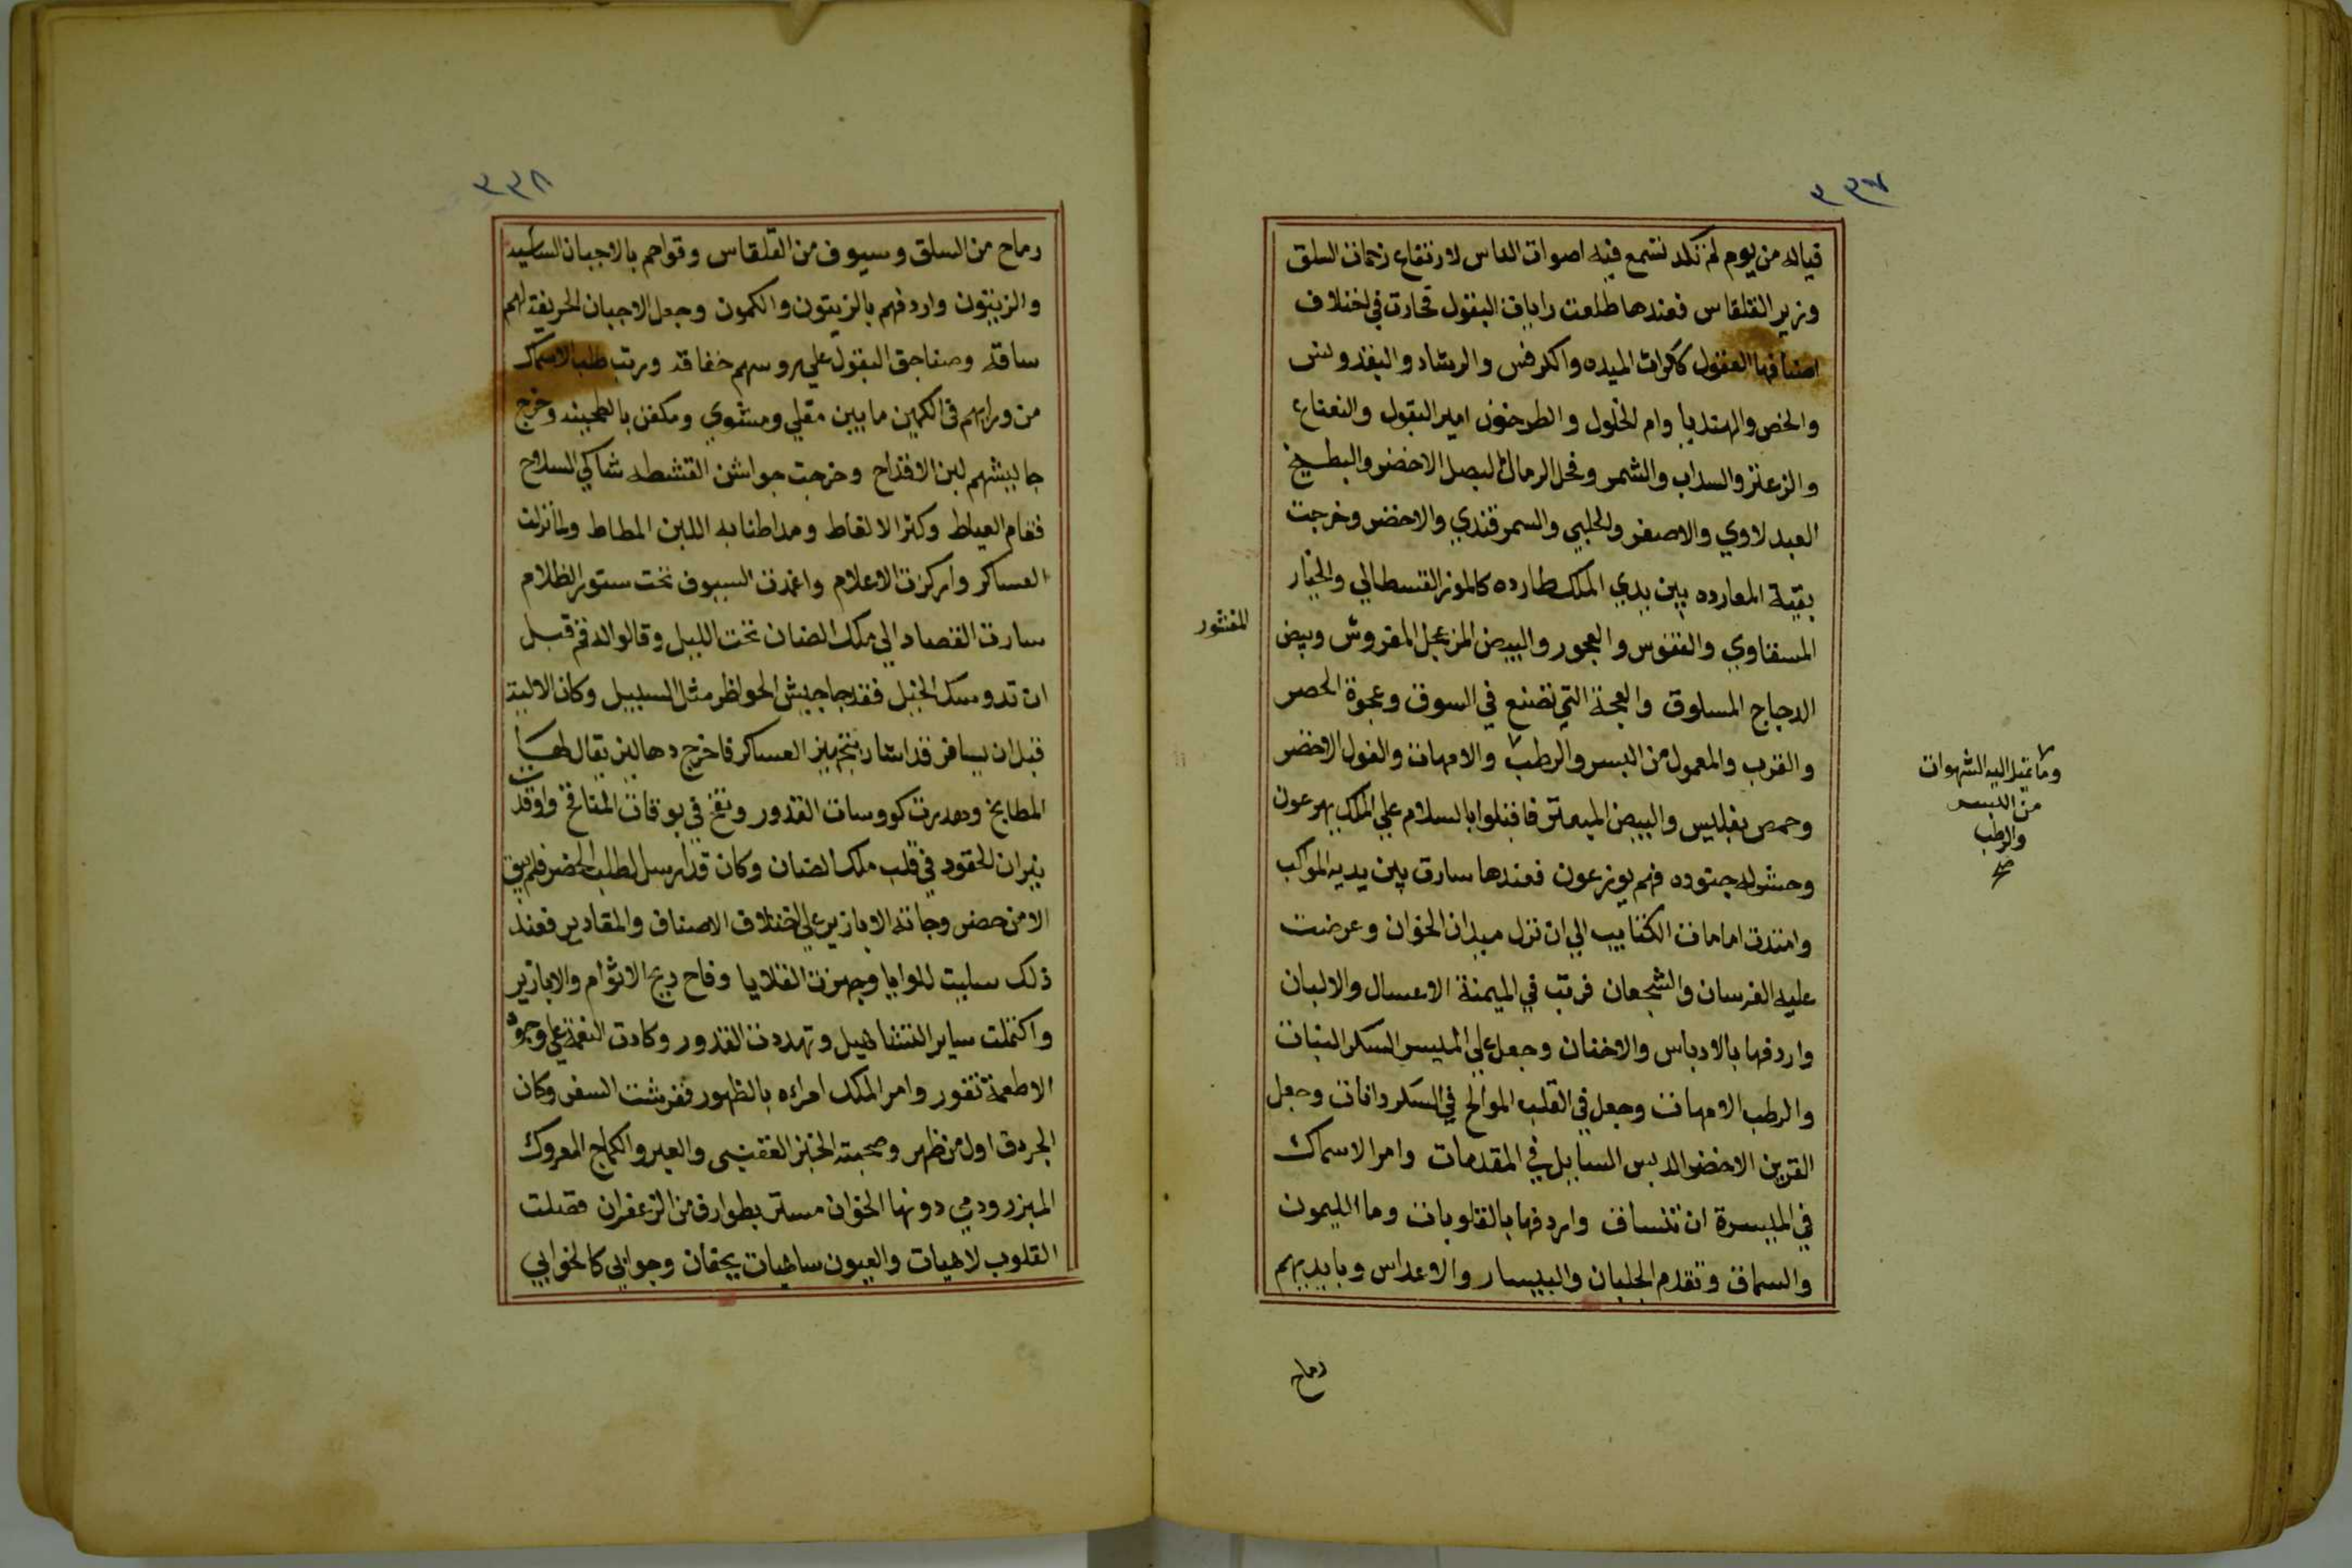 ٣٣٧
فياله من يوم لم نكد نسمع فيه اصوات الناس لارتفاع زحمات السلق
وزير القلقاس فعندها طلعت رايات البقول تحارت في اختلاف
اصنافها العقول كالكرات الميده والكرفس والرشاد والبقدونس
والخس والهندبا وام الخلول والطرخون امير البقول والنعناع
والزعتر والسداب والشمر وفحل الرمال البصل الاخضر والبطيخ
العبدلاوي والاصفر والحلبي والسمرقندي والاخضر وخرجت
بقية المعارده بين يدي الملك طارده كالموز القسطالي والخيار
المسناوي والفقوس والعجور والبيض المزعجل المقروش وبيض
المنثور
الدجاج المسلوق والعجة التي تصنع في السوق وعجوة الحصر
والقرب والمعمول من البسر والرطب والامهات والفول الاخضر
وما تميل اليه الشهوات
من البسر
والرطب
صح
وحمص بفلبيس والبيض المبعثر فاقبلوا بالسلام علي الملك يهرعون
وحشر له جنوده فهم يوزعون فعندها سارت بين يديه المواكب
وامتدت امامات الكتايب الي ان نزل ميدان الخوان وعرضت
عليه الفرسان والشجعان فرتب في الميمنة الاعسال والالبان
واردفها بالادباس والاختان وجعل علي الميسر السكر النبات
والرطب الامهات وجعل في القلب الموالح في السكردانات وجعل
القرين الاخضر الدبس السايل في المقدمات وامر الاسماك
في الميسرة ان تنساق واردفها بالقلوبات وما الليمون
والسماق وتقدم الجلبان والبيسار والاعداس وبايديهم
رماح
٣٣٨
رماح من السلق وسيوف من القلقاس وقواهم بالاجبان الساسيه
والزيتون واردفهم بالزيتون والكمون وجعل الاجبان الحريفة لهم
ساقه وصناجق البقول علي روسهم خفاقه ورتب طلب الاسماك
من ورايهم في الكمين ما بين مقلي ومشوي ومكفن بالطحينه وخرج
جاليشهم لبن الاقداح وخرجت جواشن القشطه شاكي السلاح
فقام العياط وكثر الالغاط ومد اطنابه اللبن المطاط ولما نزلت
العساكر واركزت الاعلام واغمدت السيوف تحت ستور الظلام
سارت القصاد الي ملك الضان تحت الليل وقالوا له قم قبل
ان تدوسك الخيل فقد جا جيش الحواظر مثل السيل وكان الالية
قبل ان يسافر قد اشار بتجهيز العساكر فاخرج دهاليز يقال لها
المطابخ وهدرت كووسات القدور ونفخ في بوقات المنافخ واوقدت
نيران الحقود في قلب ملك الضان وكان قد ارسل لطلب الخضر فلم يبق
الا من حضر وجاته الابازير علي اختلاف الاصناف والمقادير فعند
ذلك سلبت للوايا وجهزت القلايا وفاح ريح الاثوام والابازير
واكتملت ساير التشاهيل وتهددت القدور وكادت النعمة علي وجوه
الاطعمة تفور وامر الملك امراءه بالظهور ففرشت السفر وكان
الجردق اول من ظهر وصحبته الخبز الفقيسى والعبر والكماج المعروك
المبزر ودمي دونها الخوان مستر بطوارق من الزعفران فضلت
القلوب لاهيات والعيون ساهيات بجفان وجوابى كالخوابي